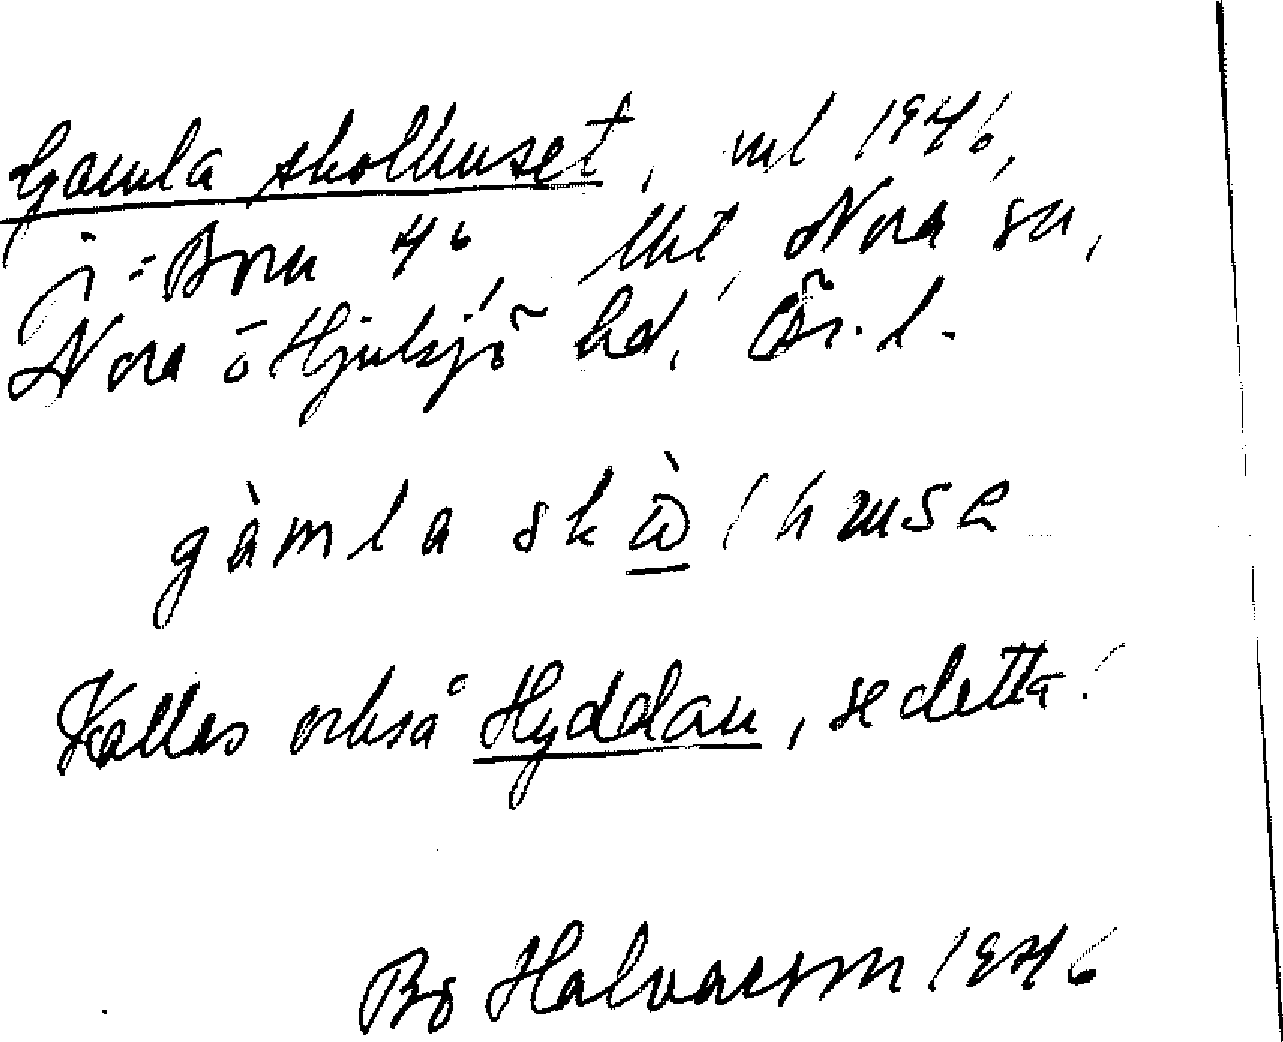 Gamla skolhuset, vid 1946,
i Born 46, Nora sn,
Nora o Hjulsjö hd, Ör. l.
gàmla skὼlhusɛ
Kallas också Hyddan, se detta!
Bo Halvarson 1946